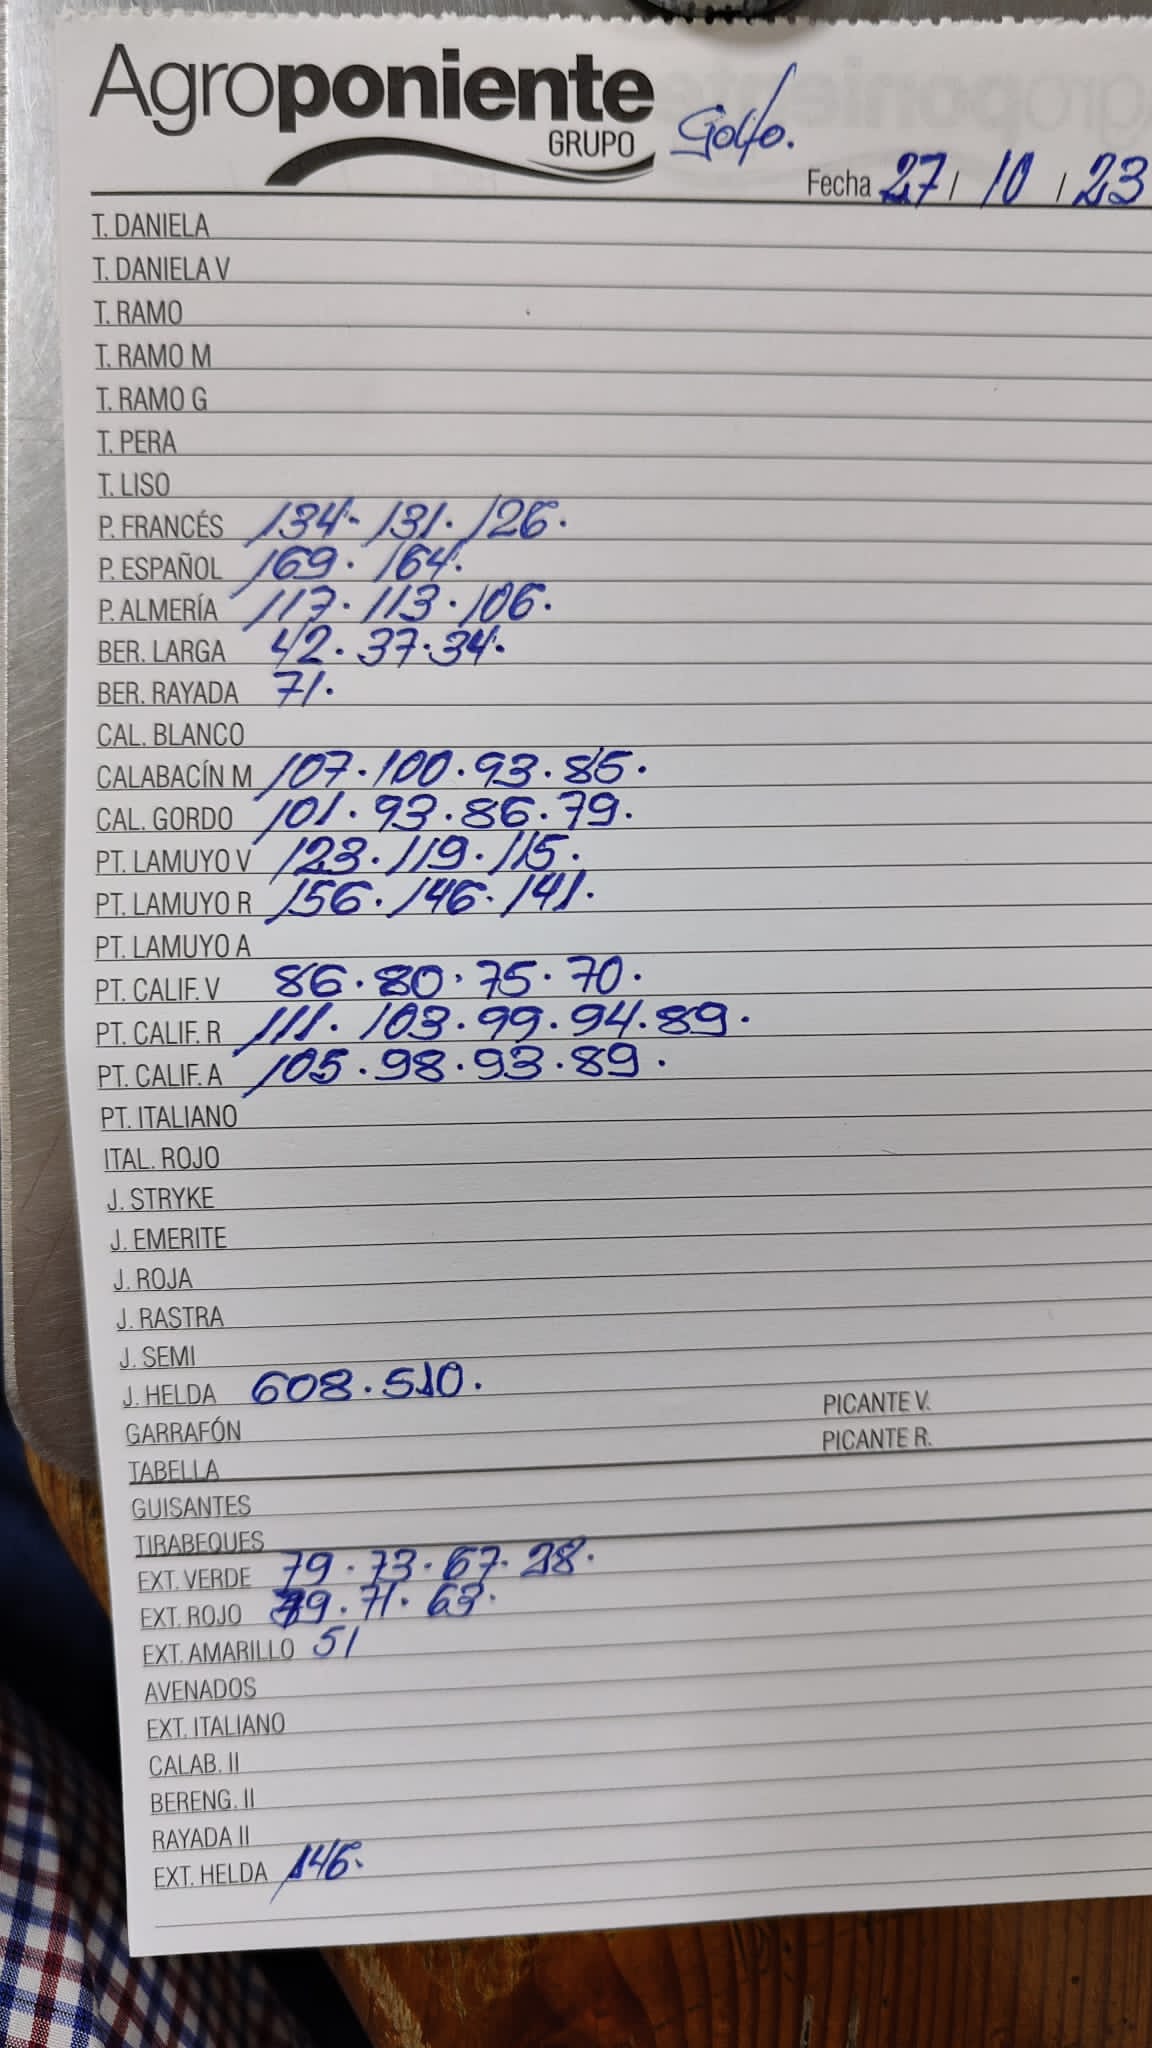 Agroponiente
GRUPO
Golfo.
Fecha 27 / 10 / 23
T. DANIELA
T. DANIELA V
T. RAMO
T. RAMO M
T. RAMO G
T. PERA
T. LISO
P. FRANCÉS 134. 131. 126.
P. ESPAÑOL 169. 164.
P. ALMERÍA 117. 113. 106.
BER. LARGA 42. 37. 34.
BER. RAYADA 71.
CAL. BLANCO
CALABACÍN M 107. 100. 93. 85.
CAL. GORDO 101. 93. 86. 79.
PT. LAMUYO V 123. 119. 115.
PT. LAMUYO R 156. 146. 141.
PT. LAMUYO A
PT. CALIF. V 86. 80. 75. 70.
PT. CALIF. R 111. 103. 99. 94. 89.
PT. CALIF. A 105. 98. 93. 89.
PT. ITALIANO
ITAL. ROJO
J. STRYKE
J. EMERITE
J. ROJA
J. RASTRA
J. SEMI
J. HELDA 608. 510.
GARRAFÓN PICANTE V.
TABELLA PICANTE R.
GUISANTES
TIRABEQUES
EXT. VERDE 79. 73. 67. 28.
EXT. ROJO 71. 63.
EXT. AMARILLO 51
AVENADOS
EXT. ITALIANO
CALAB. II
BERENG. II
RAYADA II
EXT. HELDA 146.